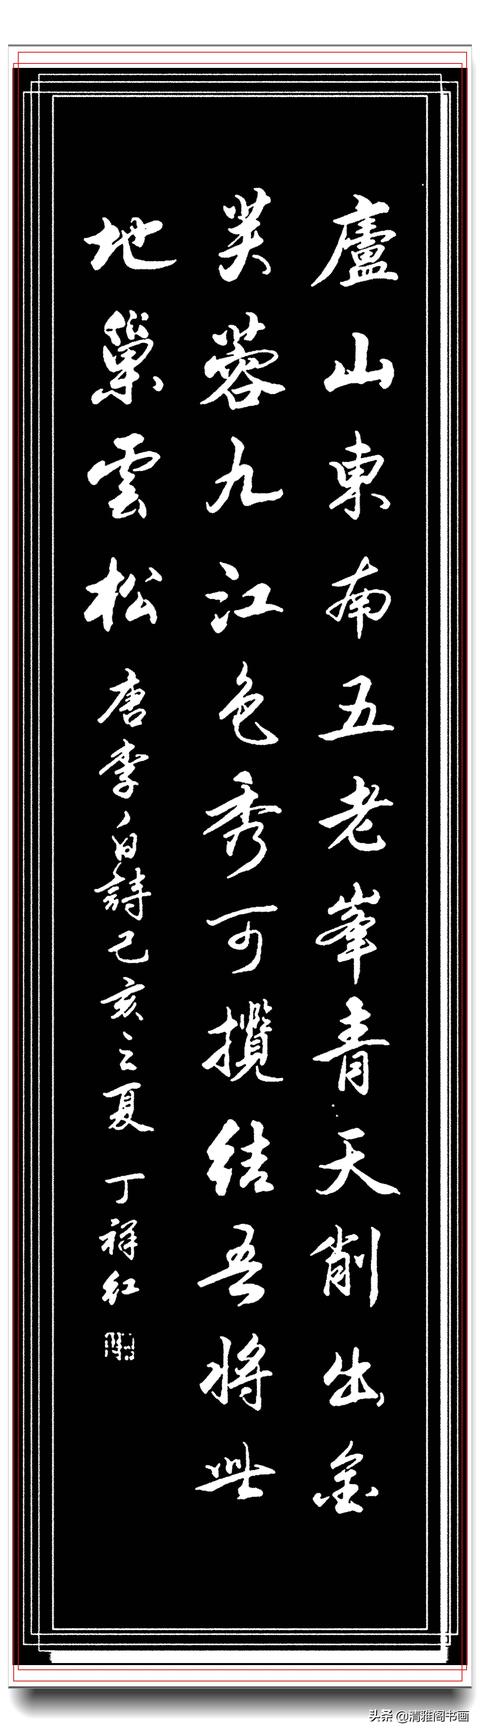 廬山東南五老峯青天削出金
芙蓉九江色秀可攬结吾将此
地巢雲松
唐李白詩己亥之夏 丁祥红
头条 @清雅阁书画